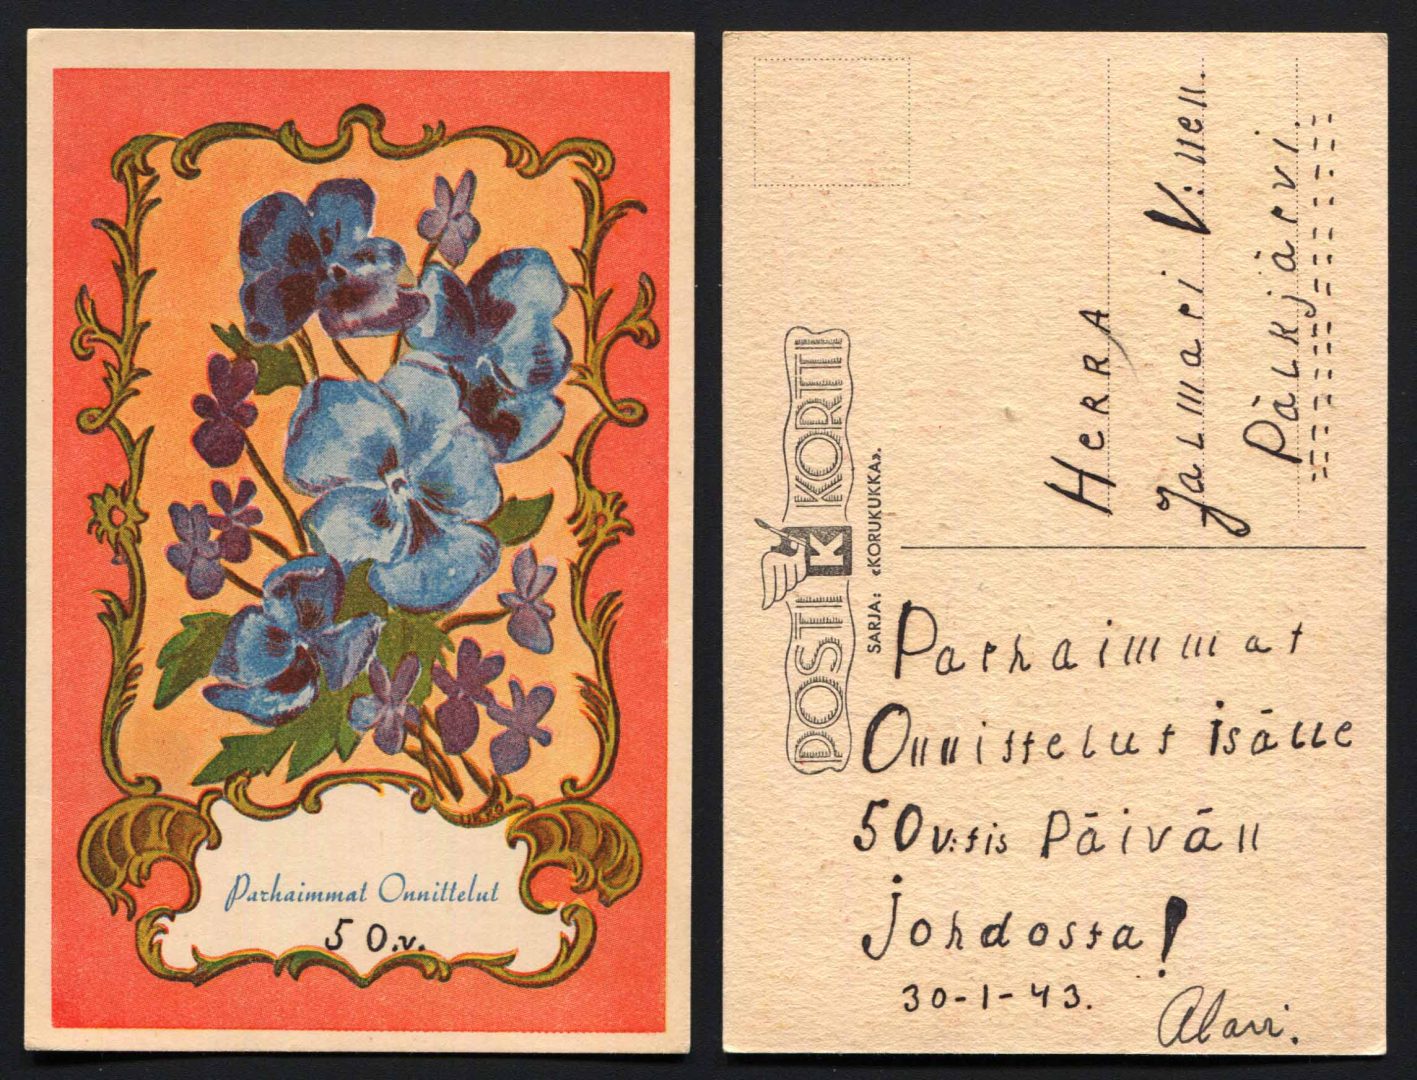 UKKO
Parhaimmat Onnittelut
50.v.
POSTI K KORTTI
SARJA: «KORUKUKKA».
HERRA
Jalmari V:nen.
Pälkjärvi.
Parhaimmat
Onnittelut isälle
50v:tis Päivän
johdosta!
30-1-43.
Alavi.